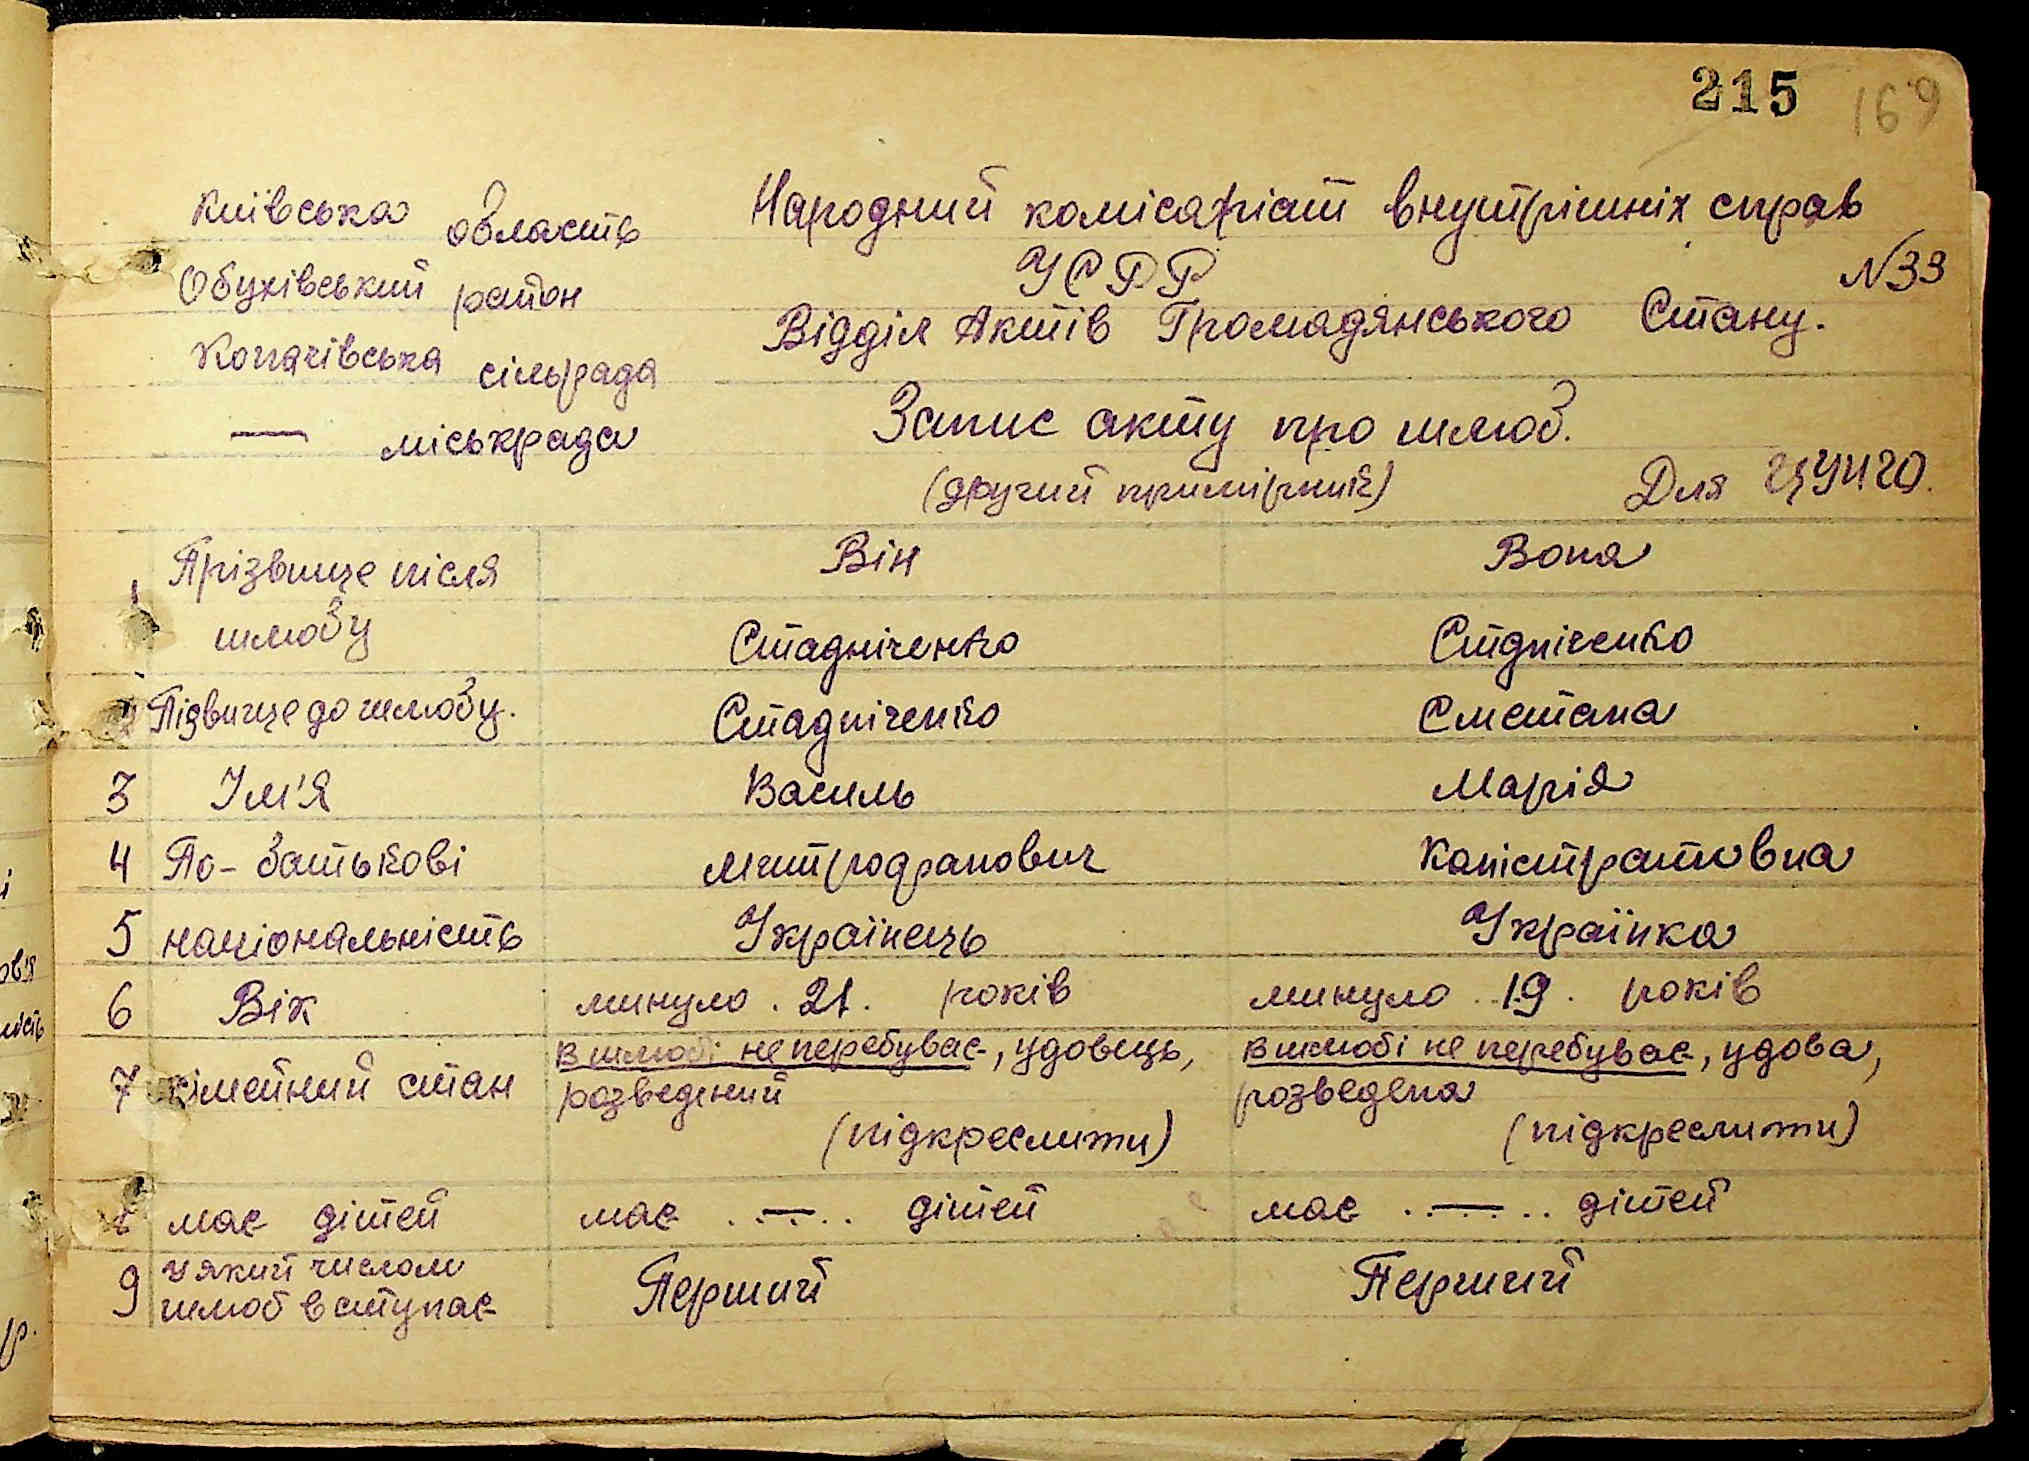 215 169
Київська область
Обухівський район
Копачівська сільрада
— міськрада
Народний комісаріат внутрішніх справ
УСРР
№33
Відділ Актів Громадянського Стану.
Запис акту про шлюб.
(другий примірник)
Для ЦУНГО.
1 Прізвище після шлюбу
Він
Вона
Стадніченко
Стдніченко
2 Пізвище до шлюбу. Стадніченко Сметана
3 Ім'я Василь Марія
4 По-батькові Митрофанович Каністратовна
5 національність Українець Українка
6 Вік минуло . 21 . років минуло . 19 . років
7 сімейний стан
в шлюбі не перебуває, удовець,
розведений
(підкреслити)
в шлюбі не перебуває, удова,
розведена
(підкреслити)
8 має дітей має . — . дітей має . — . дітей
9 У який числом
шлюб вступає
Перший
Перший